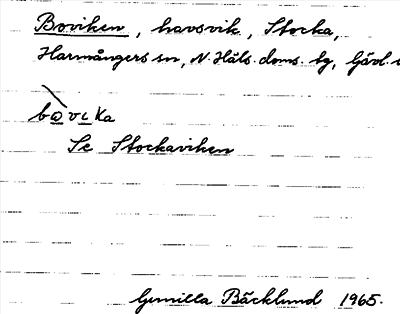 Boviken, havsvik, Stocka,
Harmångers sn, N. Häls. doms. tg, Gävl.
bo̲vi̲ka
Se Stockaviken
Gunilla Bäcklund 1965.